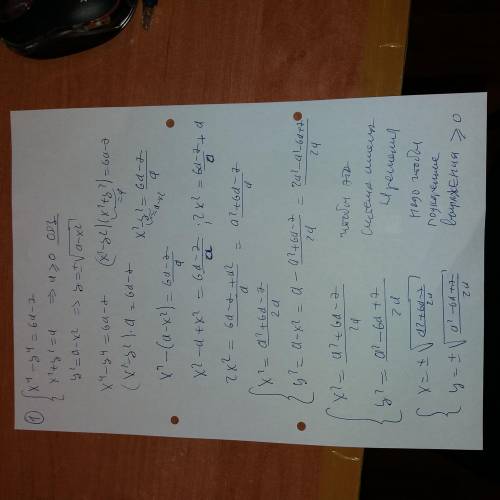 ① { x⁴-y⁴=6a-7
x²+y²=a ⇒ a≥0 ОДЗ
y²=a-x² ⇒ y=±√(a-x²)
x⁴-y⁴=6a-7 (x²-y²)(x²+y²)=6a-7
=a
(x²-y²)·a=6a-7 x²-y²=(6a-7)/a
=a-x²
x²-(a-x²)=(6a-7)/a
x²-a+x²=(6a-7)/a ; 2x²=(6a-7)/a+a
2x²=(6a-7+a²)/a = (a²+6a-7)/a
{ x²=(a²+6a-7)/2a
y²=a-x²=a-(a²+6a-7)/2a=(2a²-a²-6a+7)/2a
{ x²=(a²+6a-7)/2a
y²=(a²-6a+7)/2a
чтобы эта
система имела
4 решения
{ x=±√((a²+6a-7)/2a)
y=±√((a²-6a+7)/2a)
надо чтобы
подкоренные
выражения ≥0